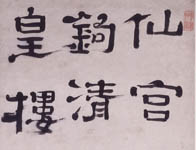 仙宮
清
皇樓